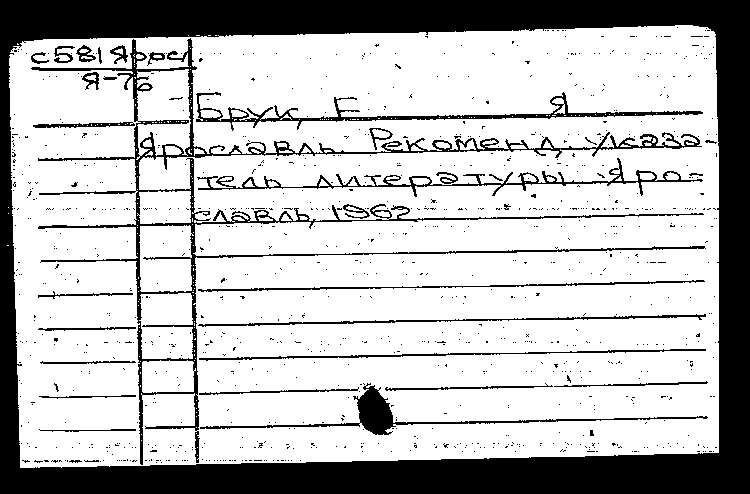 с581Яросл.
Я-76
Брук, Е Я
Ярославль. Рекоменд. указа-
тель литературы. Яро-
славль, 1962